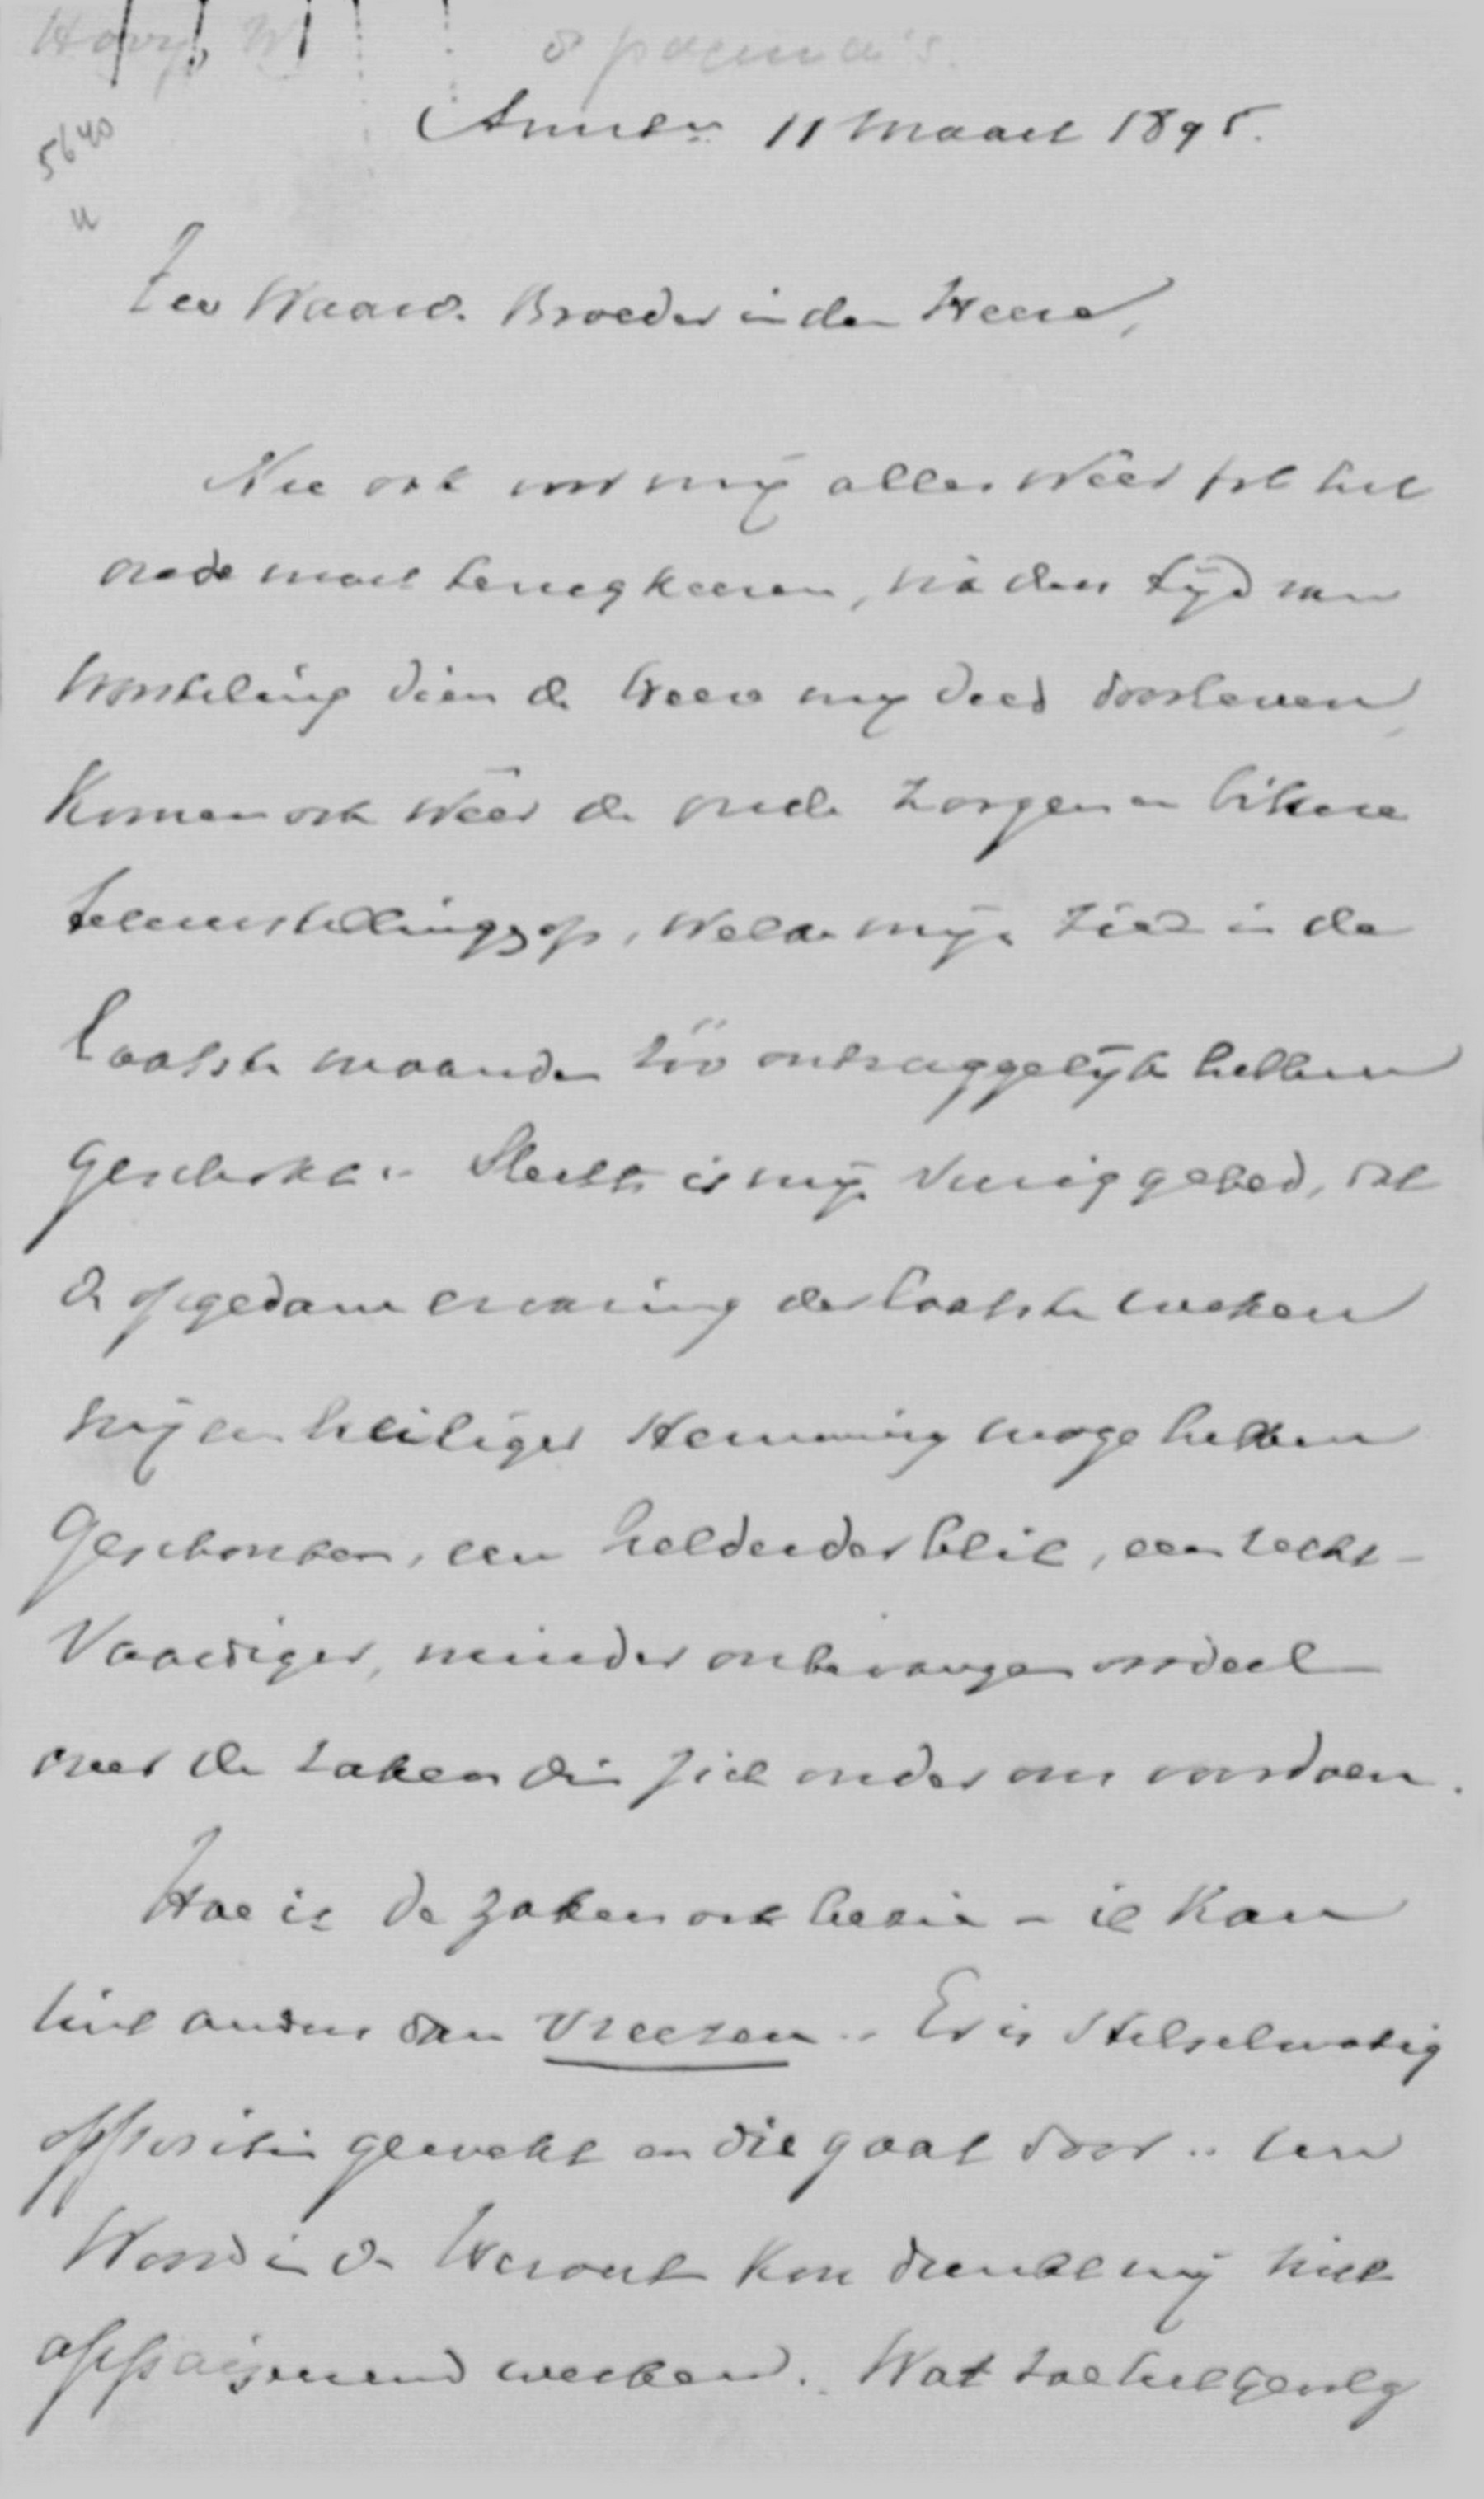 Hovy, W
8 pagina's.
5640
Amstm 11 Maart 1895.
Zeer Waard. Broeder in den Heere,
Nu ook voor mij alles wêer tot het
oude moet terugkeeren, nà den tijd van
worsteling dien de Heere mij deed doorleven,
Komen ook wêer de oude zorgen en bittere
teleurstellingen op, welke mijn ziel in de
laatste maanden zóó ontzaggelijk hebben
geschokt. Slechts is mijn vurig gebed, dat
de opgedane ervaring der laatste weken
mij een heiliger stemming moge hebben
geschonken, een helderder blik, een recht-
vaardiger, minder onbevangen oordeel
over de zaken die zich onder ons voordoen.
Hoe ik de zaken ook bezie - ik kan
niet anders dan vreezen. Er is stelselmatig
oppositie gewekt en die gaat door.. een
Woord in de Heraut kon dunkt mij niet
appaiseerend werken. Wat zal het gevolg